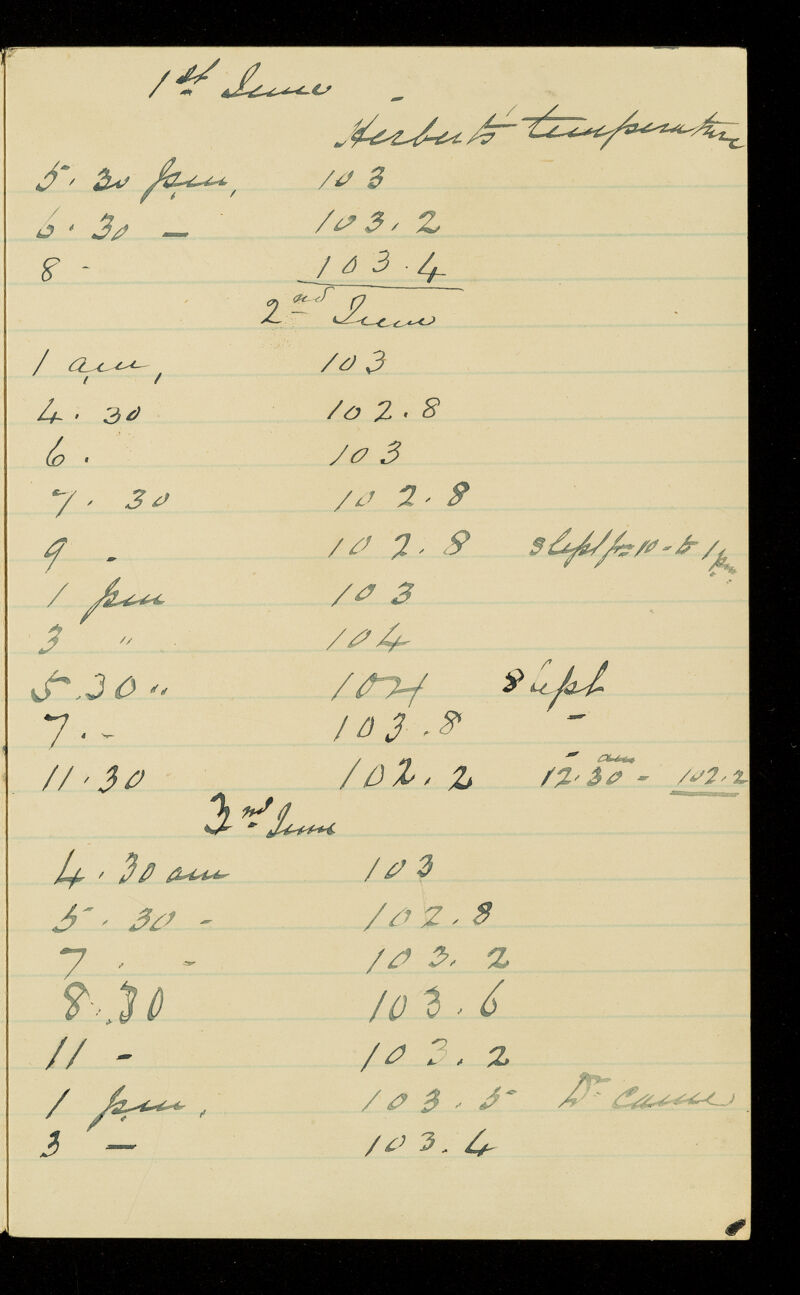 1st June -
Herbert's temperature
5.30 p.m, 103
6.30 — 103.2
8 - 103.4
2nd June
1 a.m, 103
4.30 102.8
6. 103
7.30 102.8
9 - 102.8 slept fm 10 - to 1 p.m.
1 pm 103
3 " 104
5.30 " 104 Slept
7. - 103.8 -
11.30 102.2 - 12.30 am - 102.2
3nd June
4.30 am 103
5.30 - 102.8
7. - 103.2
8.30 103.6
11 - 103.2
1 p.m. 103.5 Dr came
3 — 103.4